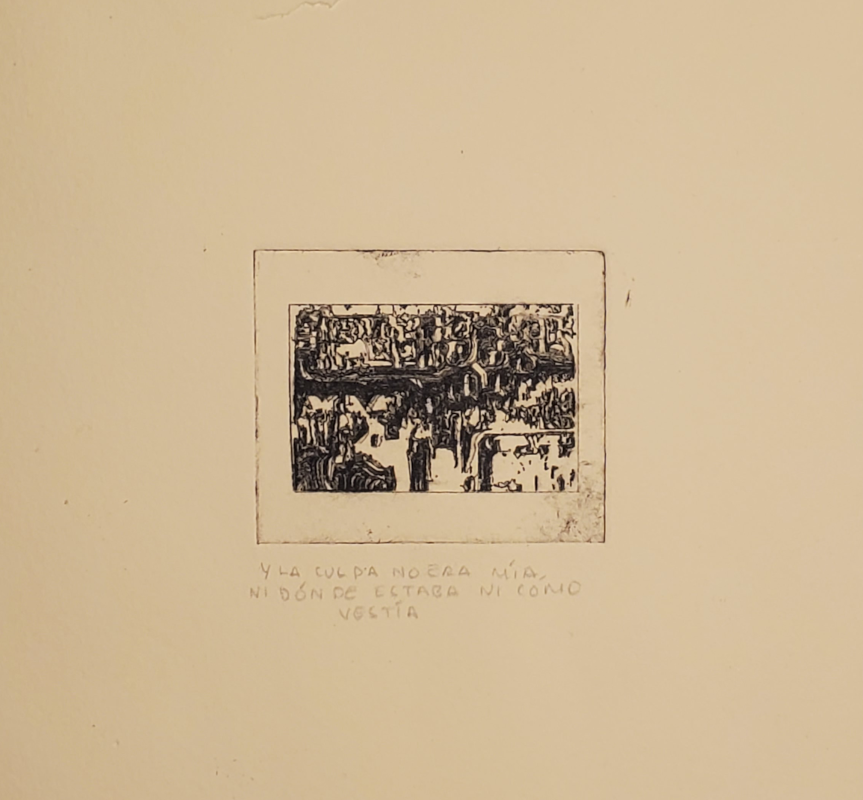 Y LA CULPA NO ERA MÍA,
NI DÓNDE ESTABA NI CÓMO
VESTÍA